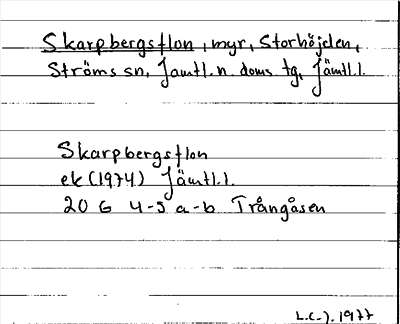 Skarpbergsflon, myr, Storhöjden,
Ströms sn, Jämtl. n. doms tg, Jämtl.l.
Skarpbergsflon
ek (1974) Jämtl.l.
20 G 4-5 a-b Trångåsen
L.C-J. 1977